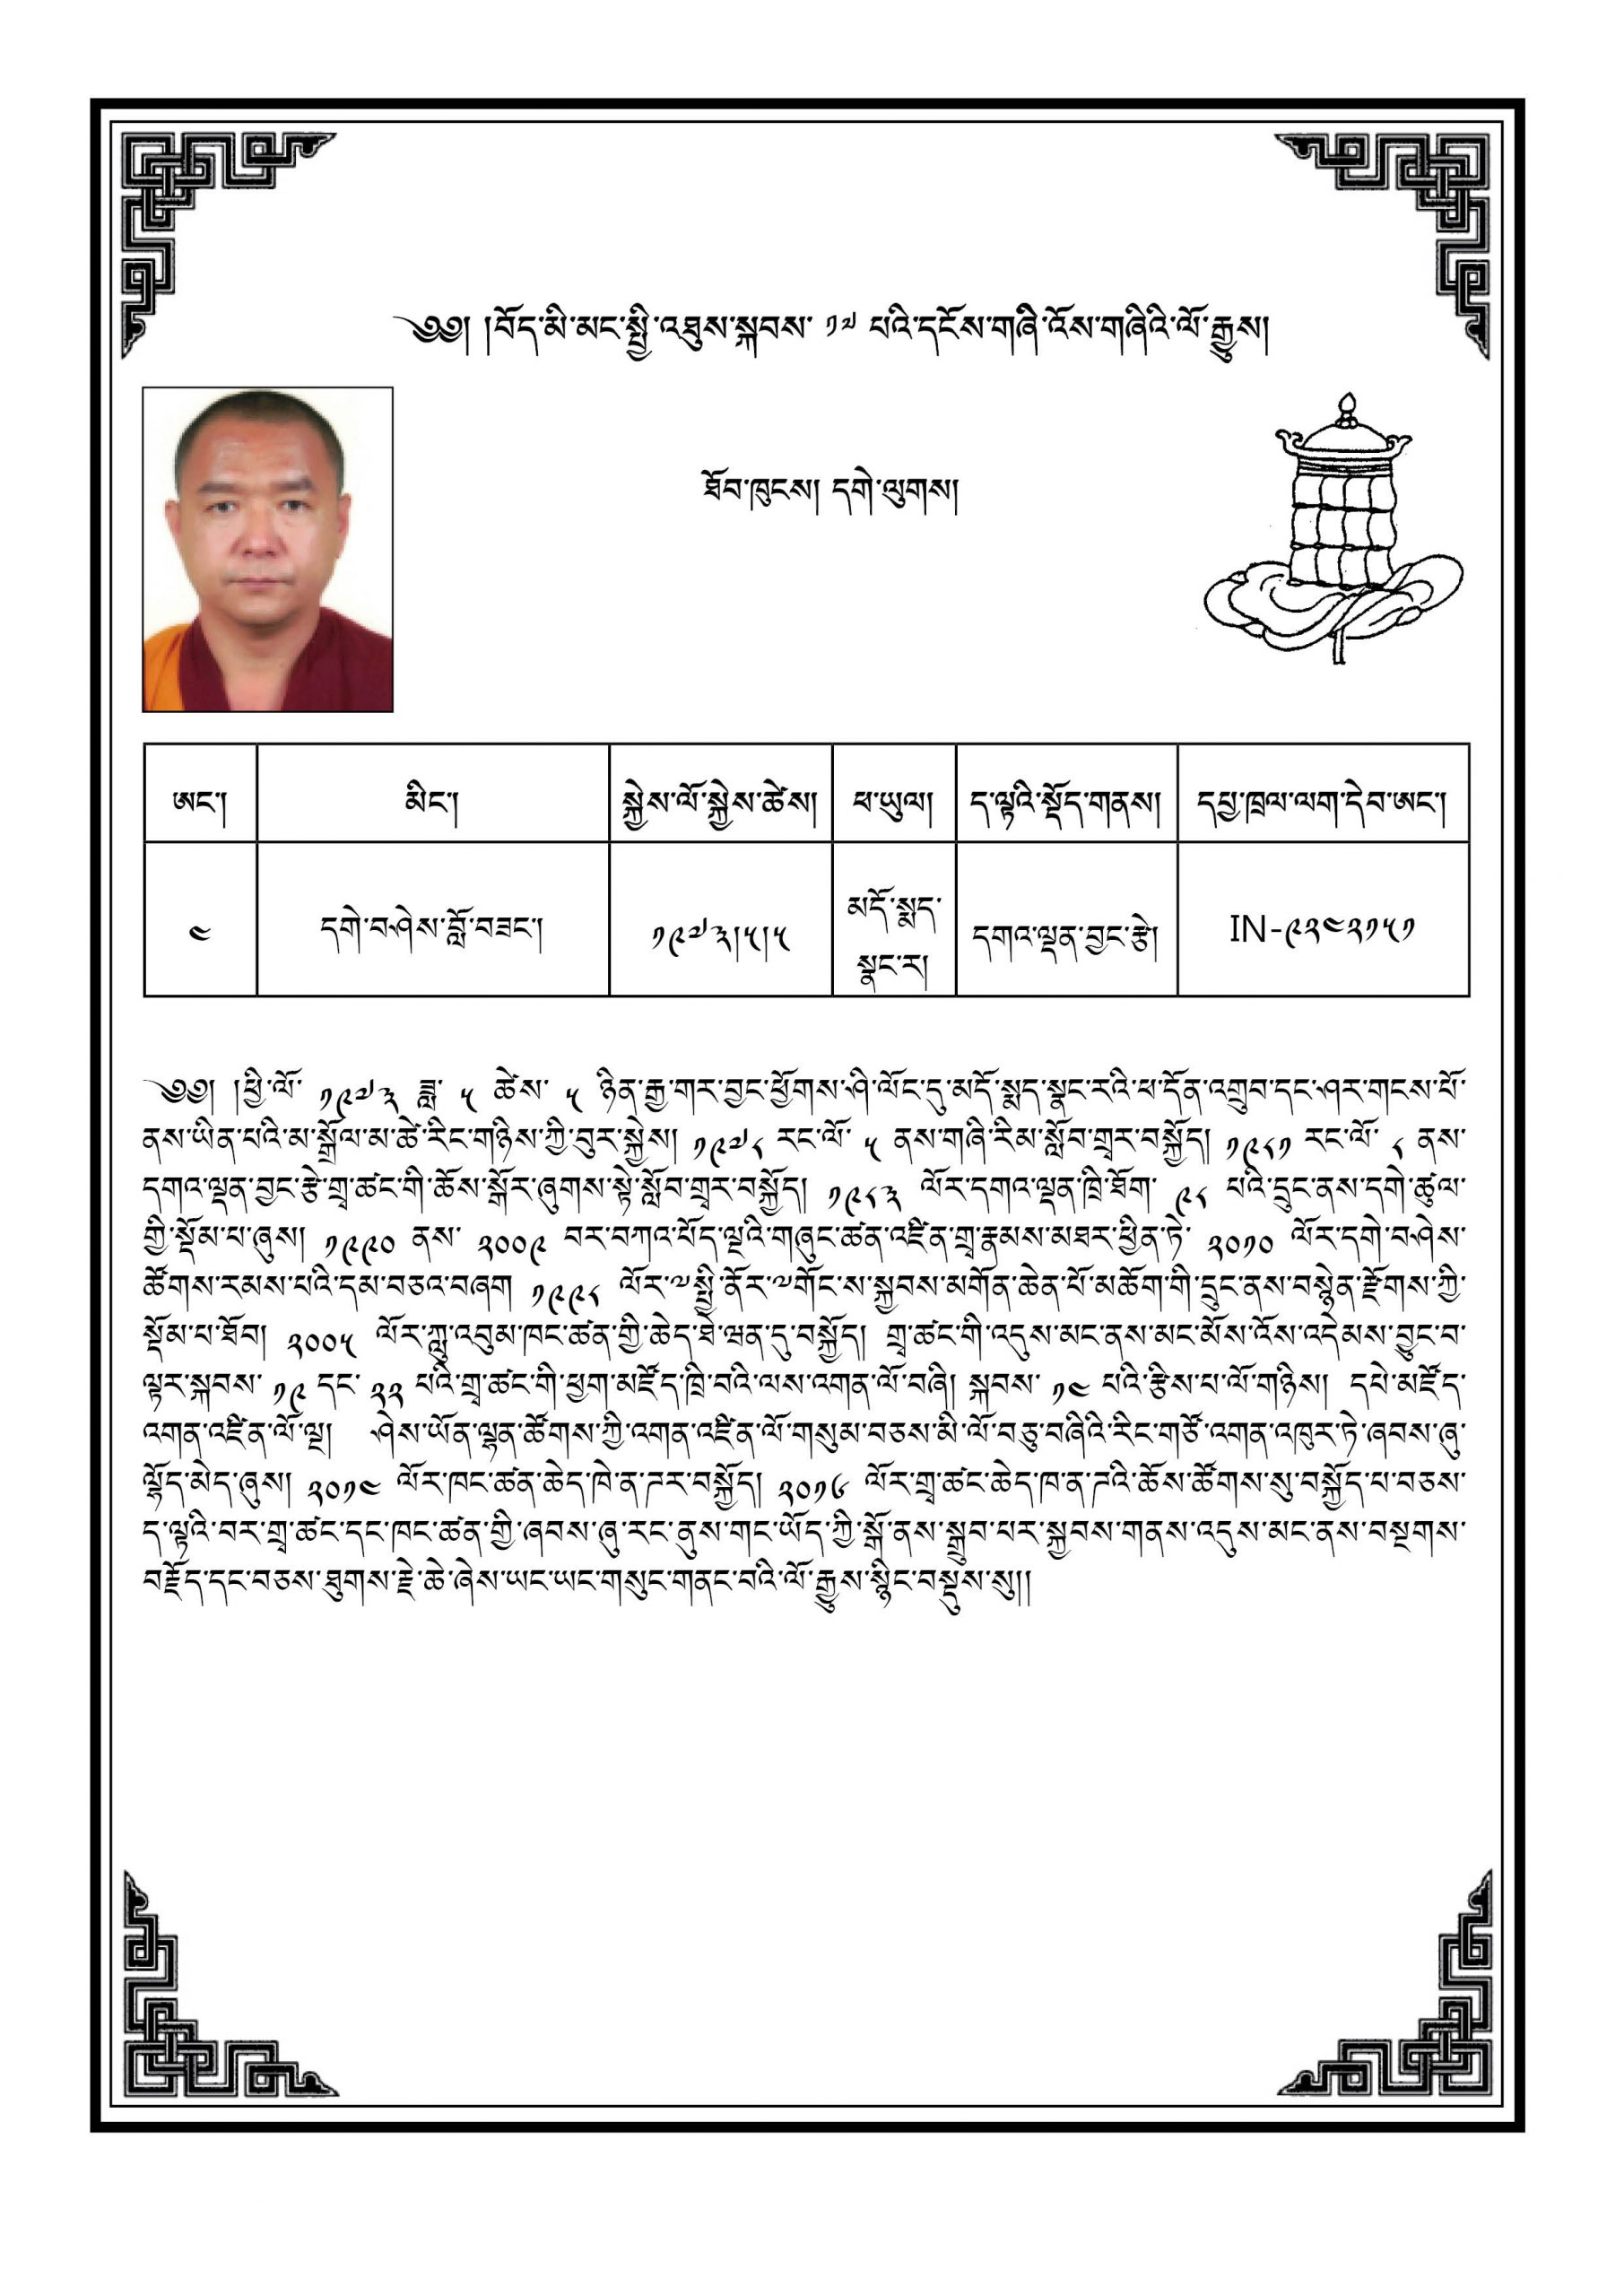 ༄༅། །བོད་མི་མང་སྤྱི་འཐུས་སྐབས་ ༡༧ པའི་དངོས་གཞི་འོས་གཞིའི་ལོ་རྒྱུས།
ཐོབ་ཁུངས། དགེ་ལུགས།
ཨང་། མིང་། སྐྱེས་ལོ་སྐྱེས་ཚེས། ཕ་ཡུལ། ད་ལྟའི་སྡོད་གནས། དཔྱ་ཁྲལ་ལག་དེབ་ཨང་།
༤ དགེ་བཤེས་བློ་བཟང་། ༡༩༧༣།༥།༥ མདོ་སྨད་སྣང་ར། དགའ་ལྡན་བྱང་རྩེ། IN-༩༢༤༢༡༥༡
༄༅། །ཕྱི་ལོ་ ༡༩༧༣ ཟླ་ ༥ ཚེས་ ༥ ཉིན་རྒྱ་གར་བྱང་ཕྱོགས་ཤི་ལོང་དུ་མདོ་སྨད་སྣང་རའི་ཕ་དོན་འགྲུབ་དང་ཤར་གངས་པོ་
ནས་ཡིན་པའི་མ་སྒྲོལ་མ་ཚེ་རིང་གཉིས་ཀྱི་བུར་སྐྱེས། ༡༩༧༨ རང་ལོ་ ༥ ནས་གཞི་རིམ་སློབ་གྲྭར་བསྐྱོད། ༡༩༨༡ རང་ལོ་ ༨ ནས་
དགའ་ལྡན་བྱང་རྩེ་གྲྭ་ཚང་གི་ཆོས་སྒོར་ཞུགས་སྟེ་སློབ་གྲྭར་བསྐྱོད། ༡༩༨༣ ལོར་དགའ་ལྡན་ཁྲི་ཐོག་ ༩༨ པའི་དྲུང་ནས་དགེ་ཚུལ་
གྱི་སྡོམ་པ་ཞུས། ༡༩༩༠ ནས་ ༢༠༠༩ བར་བཀའ་པོད་ལྔའི་གཞུང་ཚན་འཛིན་གྲྭ་རྣམས་མཐར་ཕྱིན་ཏེ་ ༢༠༡༠ ལོར་དགེ་བཤེས་
ཚོགས་རམས་པའི་དམ་བཅའ་བཞག ༡༩༩༨ ལོར་༸སྤྱི་ནོར་༸གོང་ས་སྐྱབས་མགོན་ཆེན་པོ་མཆོག་གི་དྲུང་ནས་བསྙེན་རྫོགས་ཀྱི་
སྡོམ་པ་ཐོབ། ༢༠༠༥ ལོར་ཀླུ་འབུམ་ཁང་ཚན་གྱི་ཆེད་ཐེ་ཝན་དུ་བསྐྱོད། གྲྭ་ཚང་གི་འདུས་མང་ནས་མང་མོས་འོས་འདེམས་བྱུང་བ་
ལྟར་སྐབས་ ༡༩ དང་ ༢༢ པའི་གྲྭ་ཚང་གི་ཕྱག་མཛོད་ཁྲི་བའི་ལས་འགན་ལོ་བཞི། སྐབས་ ༡༤ པའི་རྩིས་པ་ལོ་གཉིས། དཔེ་མཛོད་
འགན་འཛིན་ལོ་ལྔ། ཤེས་ཡོན་ལྷན་ཚོགས་ཀྱི་འགན་འཛིན་ལོ་གསུམ་བཅས་མི་ལོ་བཅུ་བཞིའི་རིང་གཙོ་འགན་འཁུར་ཏེ་ཞབས་ཞུ་
ལྷོད་མེད་ཞུས། ༢༠༡༤ ལོར་ཁང་ཚན་ཆེད་ཁེ་ན་ཌར་བསྐྱོད། ༢༠༡༦ ལོར་གྲྭ་ཚང་ཆེད་ཁ་ན་ཌའི་ཆོས་ཚོགས་སུ་བསྐྱོད་པ་བཅས་
ད་ལྟའི་བར་གྲྭ་ཚང་དང་ཁང་ཚན་གྱི་ཞབས་ཞུ་རང་ནུས་གང་ཡོད་ཀྱི་སྒོ་ནས་སྒྲུབ་པར་སྐྱབས་གནས་འདུས་མང་ནས་བསྔགས་
བརྗོད་དང་བཅས་ཐུགས་རྗེ་ཆེ་ཞེས་ཡང་ཡང་གསུང་གནང་བའི་ལོ་རྒྱུས་སྙིང་བསྡུས་སུ།།